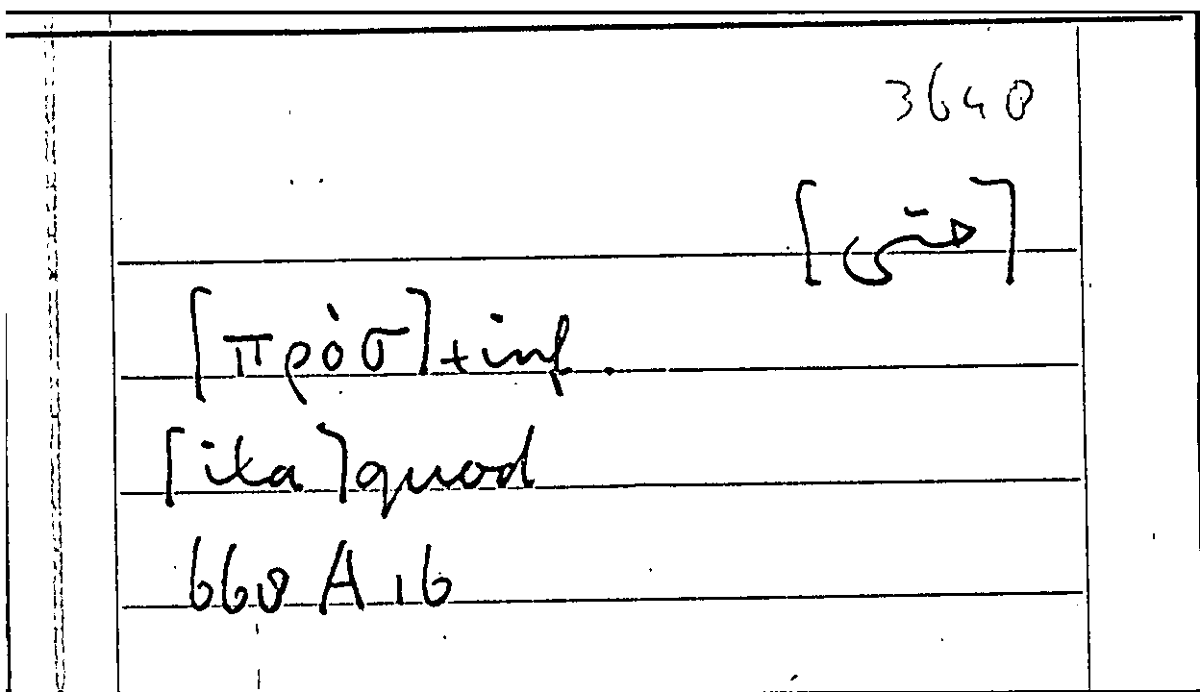 3648
[حتى]
[πρὸσ]+inf.
[ita]quod
668 A 16